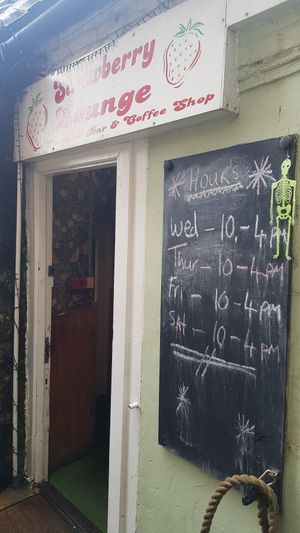 Strawberry
Lounge
Bar & Coffee Shop
Hours
Wed - 10 - 4pm
Thur - 10 - 4pm
Fri - 10 - 4pm
Sat - 10 - 4pm